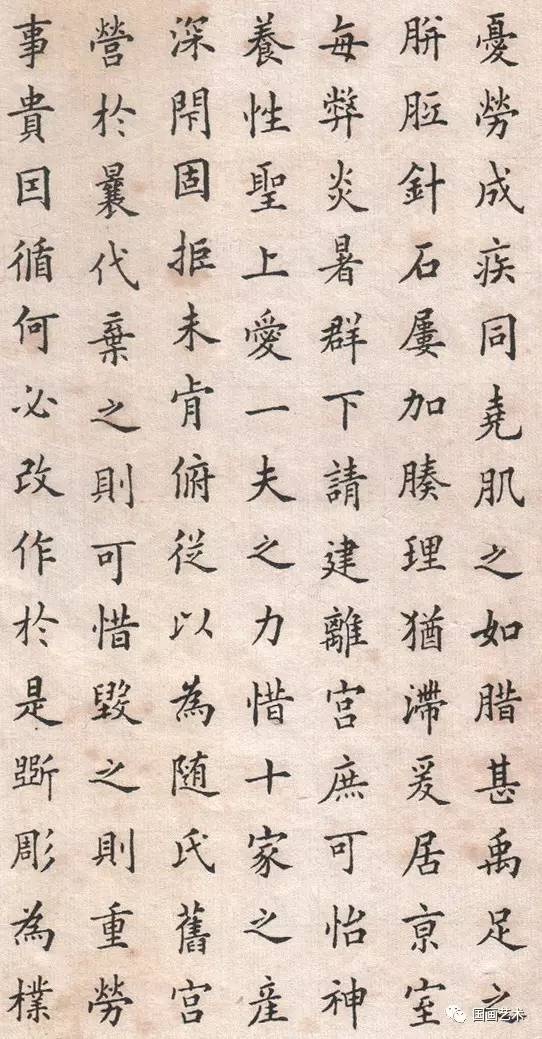 憂勞成疾同堯肌之如腊甚禹足之
胼胝針石屢加腠理猶滯爰居京室
每弊炎暑群下請建離宮庶可怡神
養性聖上愛一夫之力惜十家之產
深閇固拒未肯俯從以為随氏舊宮
營於曩代棄之則可惜毀之則重勞
事貴因循何必改作於是斲彫為樸
国画艺术